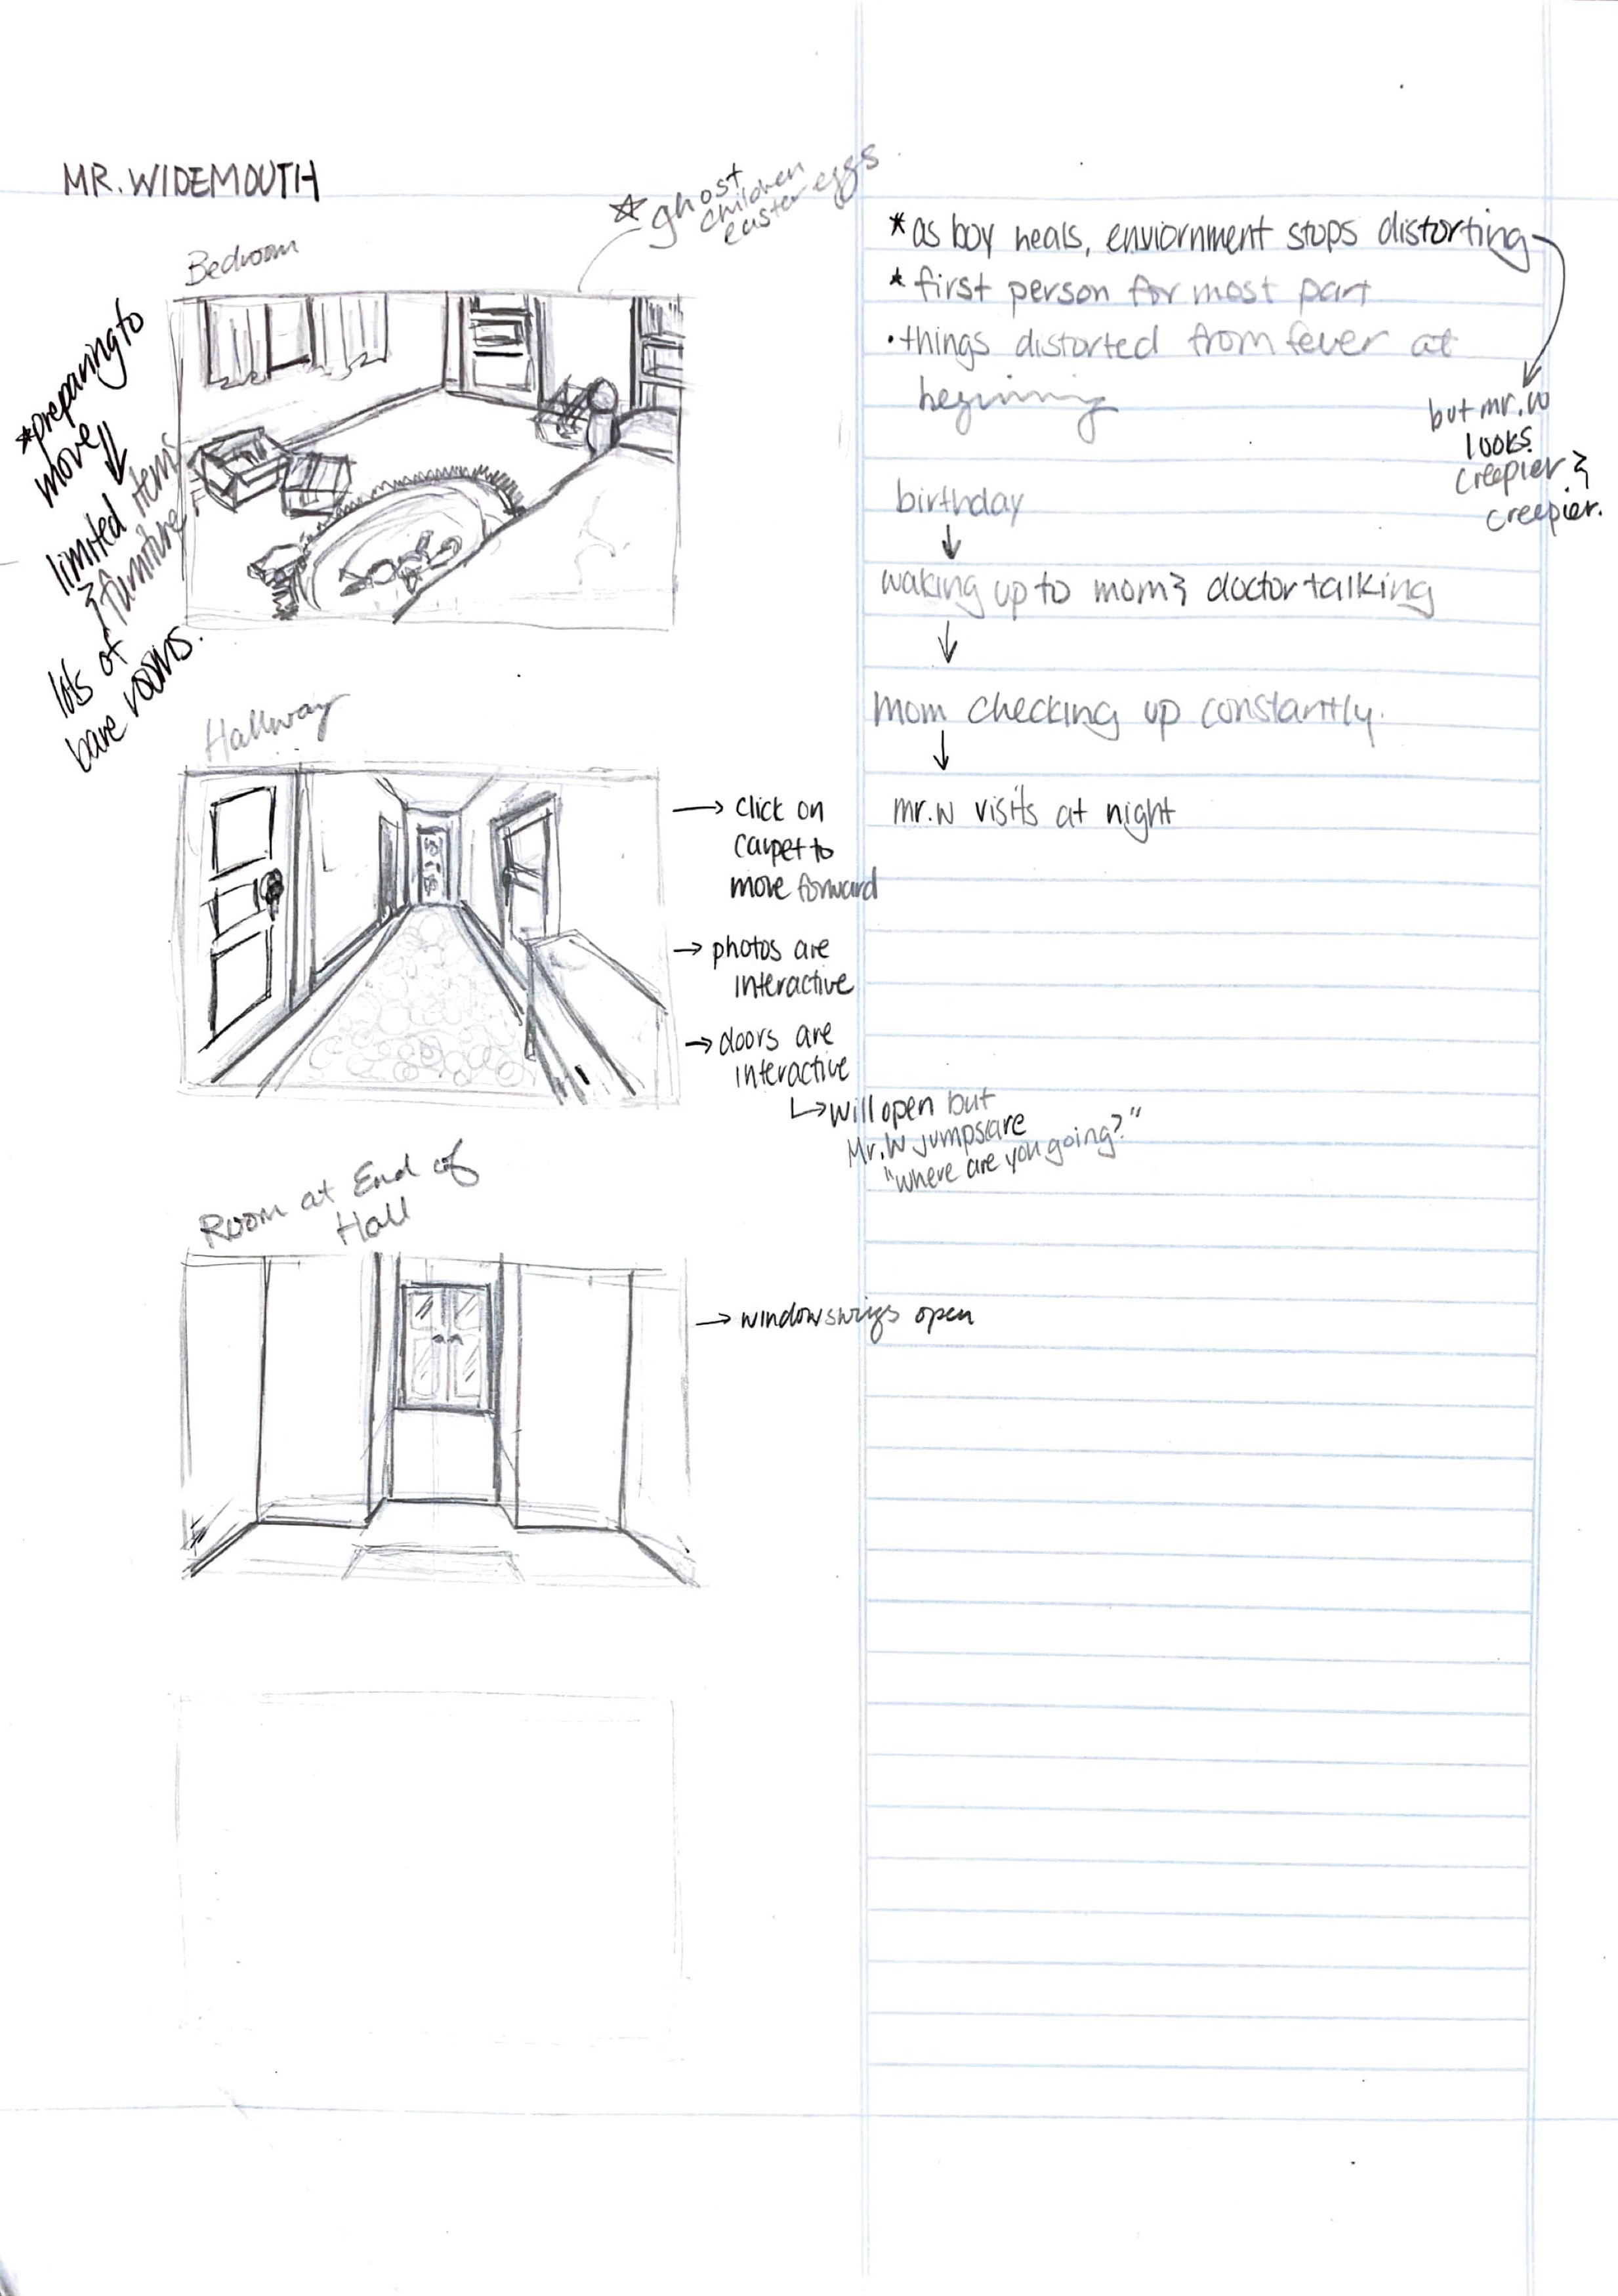 MR. WIDEMOUTH
☆ ghost
children
easter eggs
Bedroom
*preparing to
move ⇓
limited items
& furniture
lots of
bare rooms.
Hallway
→ click on
carpet to
move forward
→ photos are
interactive
→ doors are
interactive
↳ will open but
Mr. W jumpscare
"where are you going?"
Room at End of
Hall
→ window swings open
* as boy heals, enviornment stops distorting
but mr. w
looks
creepier &
creepier.
* first person for most part
• things distorted from fever at
beginning
birthday
↓
waking up to mom & doctor talking
↓
mom checking up constantly.
↓
mr. w visits at night